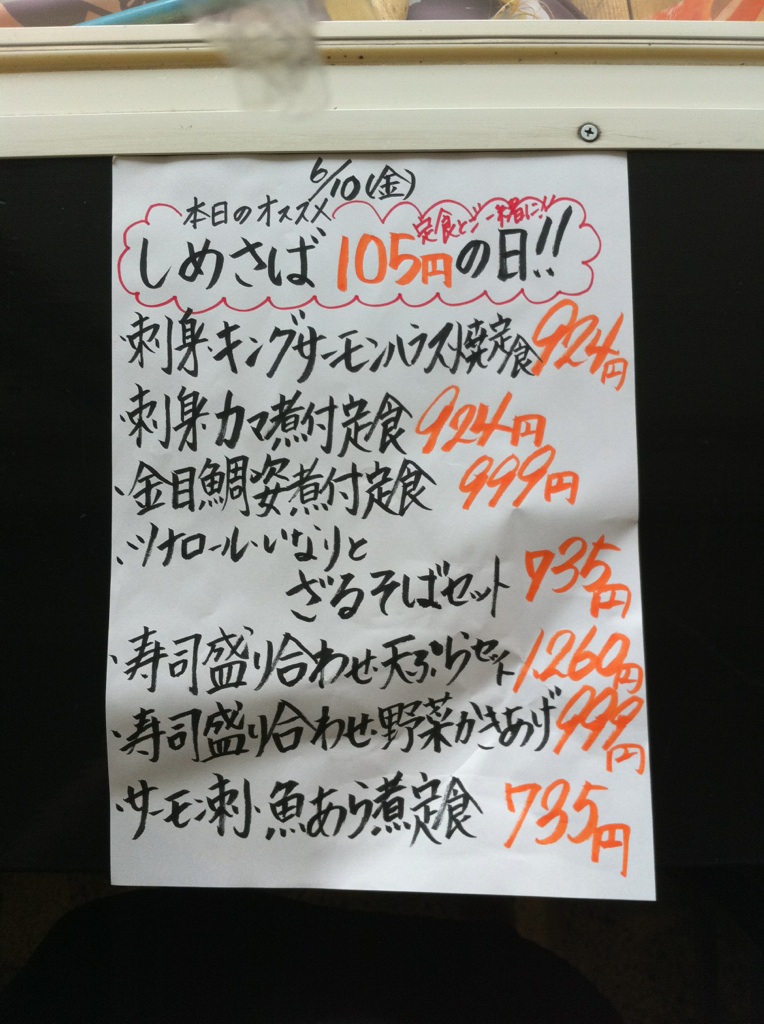 6/10(金)
本日のオススメ
定食とご一緒に!!
しめさば 105円の日!!
・刺身・キングサーモンハラス焼定食 924円
・刺身・カマ煮付定食 924円
・金目鯛姿煮付定食 999円
・ツナロール・いなりと
ざるそばセット 735円
・寿司盛り合わせ・天ぷらセット 1260円
・寿司盛り合わせ・野菜かきあげ 999円
・サーモン刺・魚あら煮定食 735円